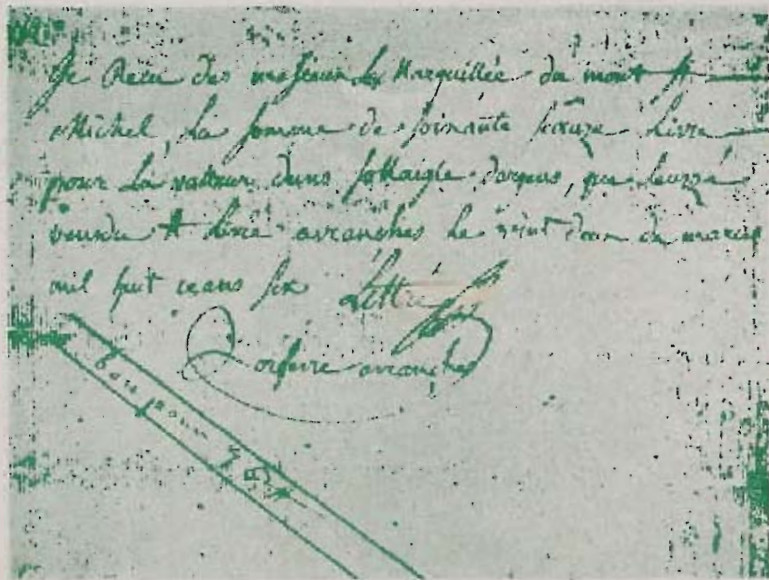 Je Recu des mesieur Les Marguillée du mont St
Michel, La somme de soixante Livre
pour La valleur duns que leurzé
vendu et Livré avranches Le vint deux du marse
mil huit cans six Littré
orfevre avranches
bon pour